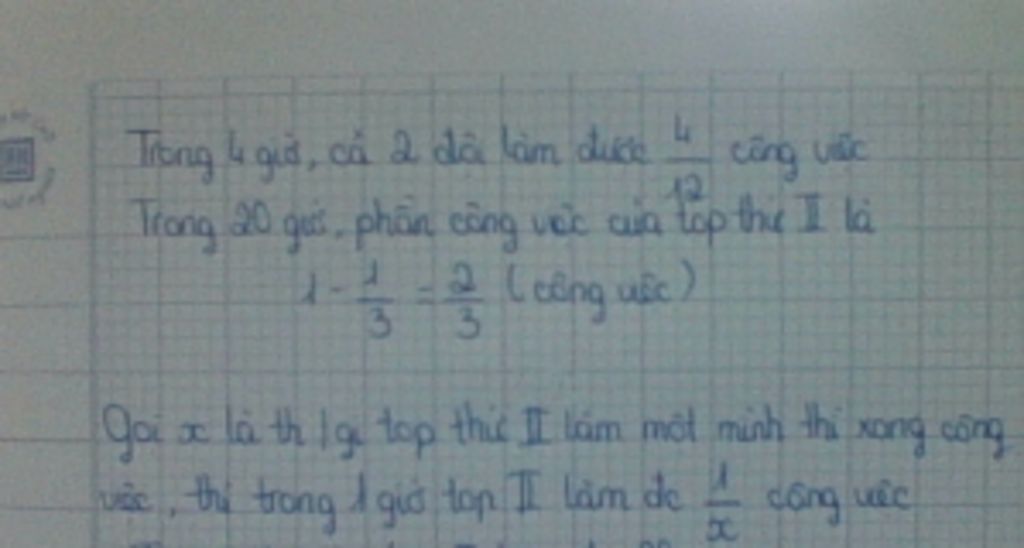 Trong 4 giờ, cả 2 đội làm được 4/12 công việc
Trong 20 giờ, phần công việc của tốp thứ II là
1 - 1/3 = 2/3 (công việc)
Gọi x là th/gi tốp thứ II làm một mình thì xong công
việc, thì trong 1 giờ tốp II làm đc 1/x công việc